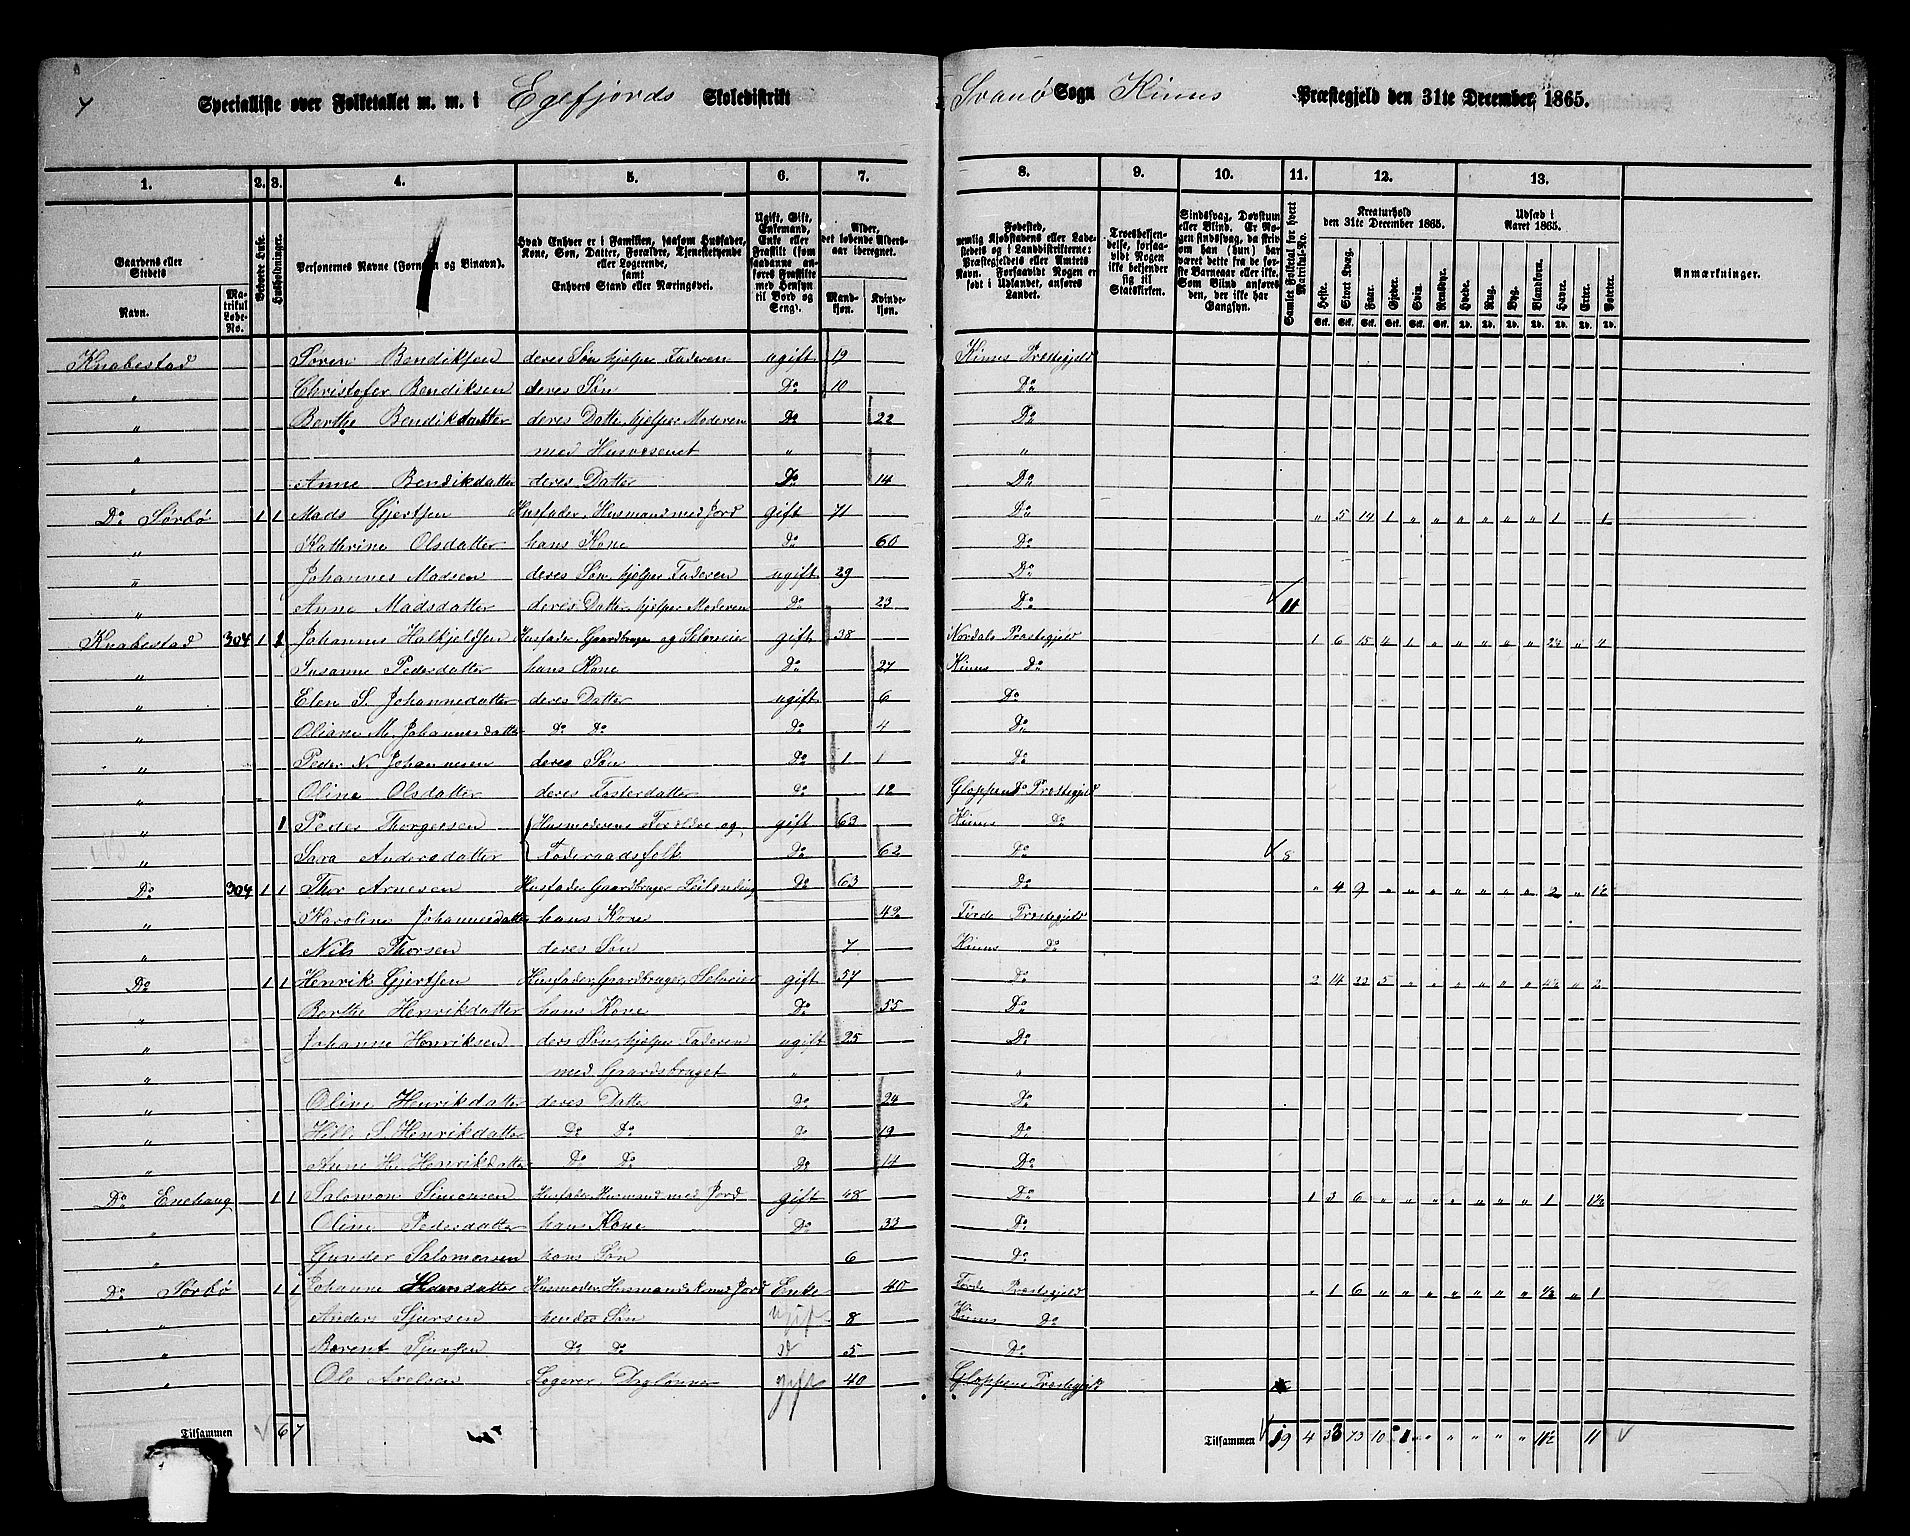 7 Specialliste over Folketallet m. m. i Egefjords Skoledistrikt Svanö Sogn Kinns Præstegjeld den 31te December 1865.
1. 2. 3. 4. 5. 6. 7. 8. 9. 10. 11. 12. 13.
Gaardens eller Stedets
Navn. Matrikul Løbe-No.
Beboede Huse.
Husholdninger.
Personernes Navne (Fornavn og Binavn).
Hvad Enhver er i Familien, saasom Husfader, Kone, Søn, Datter, Forældre, Tjenestetyende eller Logerende, samt Enhvers Stand eller Næringsvei.
Ugift, Gift, Enkemand, Enke eller Fraskilt (saavanne anføres Fraskilte med Hensyn til Bord og Seng).
Alder, det løbende Alders-aar iberegnet.
Mandkjøn. Kvindekjøn.
Fødested, nemlig Kjøbstadens eller Ladestedets og i Landdistrikterne: Præstegjeldets eller Amtets Navn. Forsaavidt Nogen er født i Udlandet, anføres Landet.
Troesbekjendelse, forsaavidt Nogen ikke bekjender sig til Statskirken.
Sindssvag, Døvstum eller Blind. Er Nogen sindssvag, da skrives om han (hun) har været dette fra de første Barneaar eller ikke. Som Blind anføres den, der ikke har Gangsyn.
Samlet Folketal for hvert Matrikul-No.
Kreaturhold den 31te December 1865.
Heste. Stort Kvæg. Faar. Gjeder. Svin. Rensdyr.
Udsæd i Aaret 1865.
Hvede. Rug. Byg. Blandkorn. Havre. Erter. Poteter.
Anmærkninger.
Knabestad Søren Bendiksen deres Søn hjelper Faderen ugift 19 Kinns Præstegjeld
" Christofer Bendiksen deres Søn Do 10 Do
" Berthe Bendikdatter deres Datter, hjelper Moderen Do 22 Do
" med Husvæsenet " "
" Anne Bendikdatter deres Datter Do 14 Do
Do Sørbø 1 1 Mads Gjertsen Husfader, Husmand med Jord gift 71 Do " 5 14 1 " " " " " " 1 1
" Kathrine Olsdatter hans Kone Do 60 Do
" Johannes Madsen deres Søn, hjelper Faderen ugift 29 Do
" Anne Madsdatter deres Datter, hjelper Moderen Do 23 Do 11
Knabestad 304 1 1 Johannes Halkjeldsen Husfader, Gaardbruger og Selveier gift 38 Nordals Præstegjeld 1 6 15 4 1 " " " " " 2½ " 4
" Susanne Pedersdatter hans Kone Do 27 Kinns Do
" Elen S. Johannesdatter deres Datter ugift 6 Do
" Oliane M. Johannesdatter Do Do Do 4 Do
" Peder N. Johannesen deres Søn Do 1 Do
" Oline Olsdatter deres Fosterdatter Do 12 Gloppens Præstegjeld
" 1 Peder Thorgersen Husmoderens Forældre og gift 63 Kinns Do
" Sara Andersdatter Føderaadsfolk Do 62 Do 8
Do 304 1 1 Thor Arnesen Husfader Gaardbruger Leilending Do 63 Do " 4 9 " " " " " " " 2 " 1½
" Karoline Johannesdatter hans Kone 49 Førde Præstegjeld
" Nils Thorsen deres Søn 7 Kinns Do
Do 1 1 Henrik Gjertsen Husfader, Gaardbruger, Selveier gift 57 Do 2 14 22 5 " " " " " " 4½ " 2
" Berthe Henrikdatter hans Kone Do 55 Do
" Johanne Henriksen deres Søn, hjelper Faderen ugift 25 Do
" med Gaardsbruget " "
" Oline Henrikdatter deres Datter Do 24 Do
" S. Henrikdatter Do Do Do 19 Do
" Anne H. Henrikdatter Do Do Do 14 Do
Do Enehaug 1 1 Salomon Simonsen Husfader, Husmand med Jord gift 48 Do 1 3 6 " " " " " " " 1 " 1½
" Oline Pedersdatter hans Kone Do 33 Do
" Gunder Salomonsen hans Søn 6 Do
Do Sørbø 1 1 Johanne Husmoder, Husmandsk med Jord Enke 40 Førde Præstegjeld " 1 6 " " " " " " " ½ " 1
" Anders Sjursen hendes Søn ugift 8 Kinns Do
" Berent Sjursen Do Do Do 5 Do
" Ole Axelsen Logerer, Daglønner gift 40 Gloppens Præstegjeld
Tilsammen 6 7 Tilsammen 19 4 33 73 10 1 " " " " 11½ 11